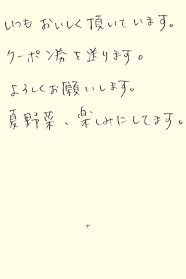 いつもおいしく頂いています。
クーポン券を送ります。
よろしくお願いします。
夏野菜、楽しみにしてます。